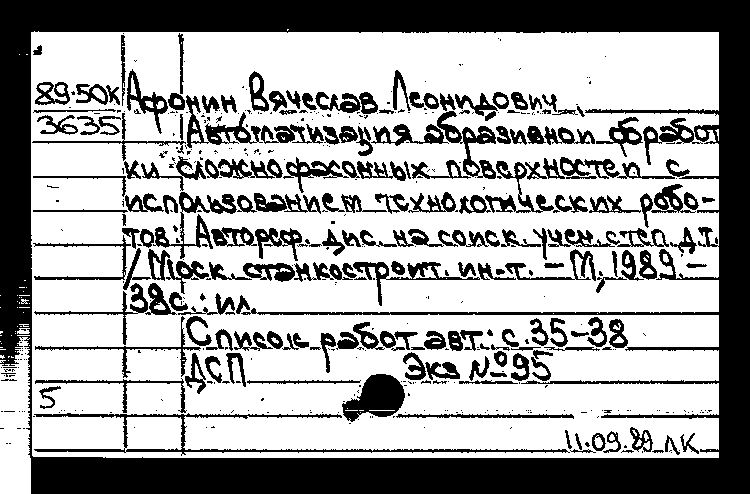 89-50К Афонин Вячеслав Леонидович
3635 Автоматизация абразивной обработ
ки сложнофасонных поверхностей с
использованием технологических робо-
тов: Автореф. дис. на соиск. учен. степ. д.т.
/ Моск. станкостроит. ин-т. – М., 1989. –
38с.: ил.
Список работ авт.: с. 35–38
ДСП Экз №95
5
11.09.89 ЛК